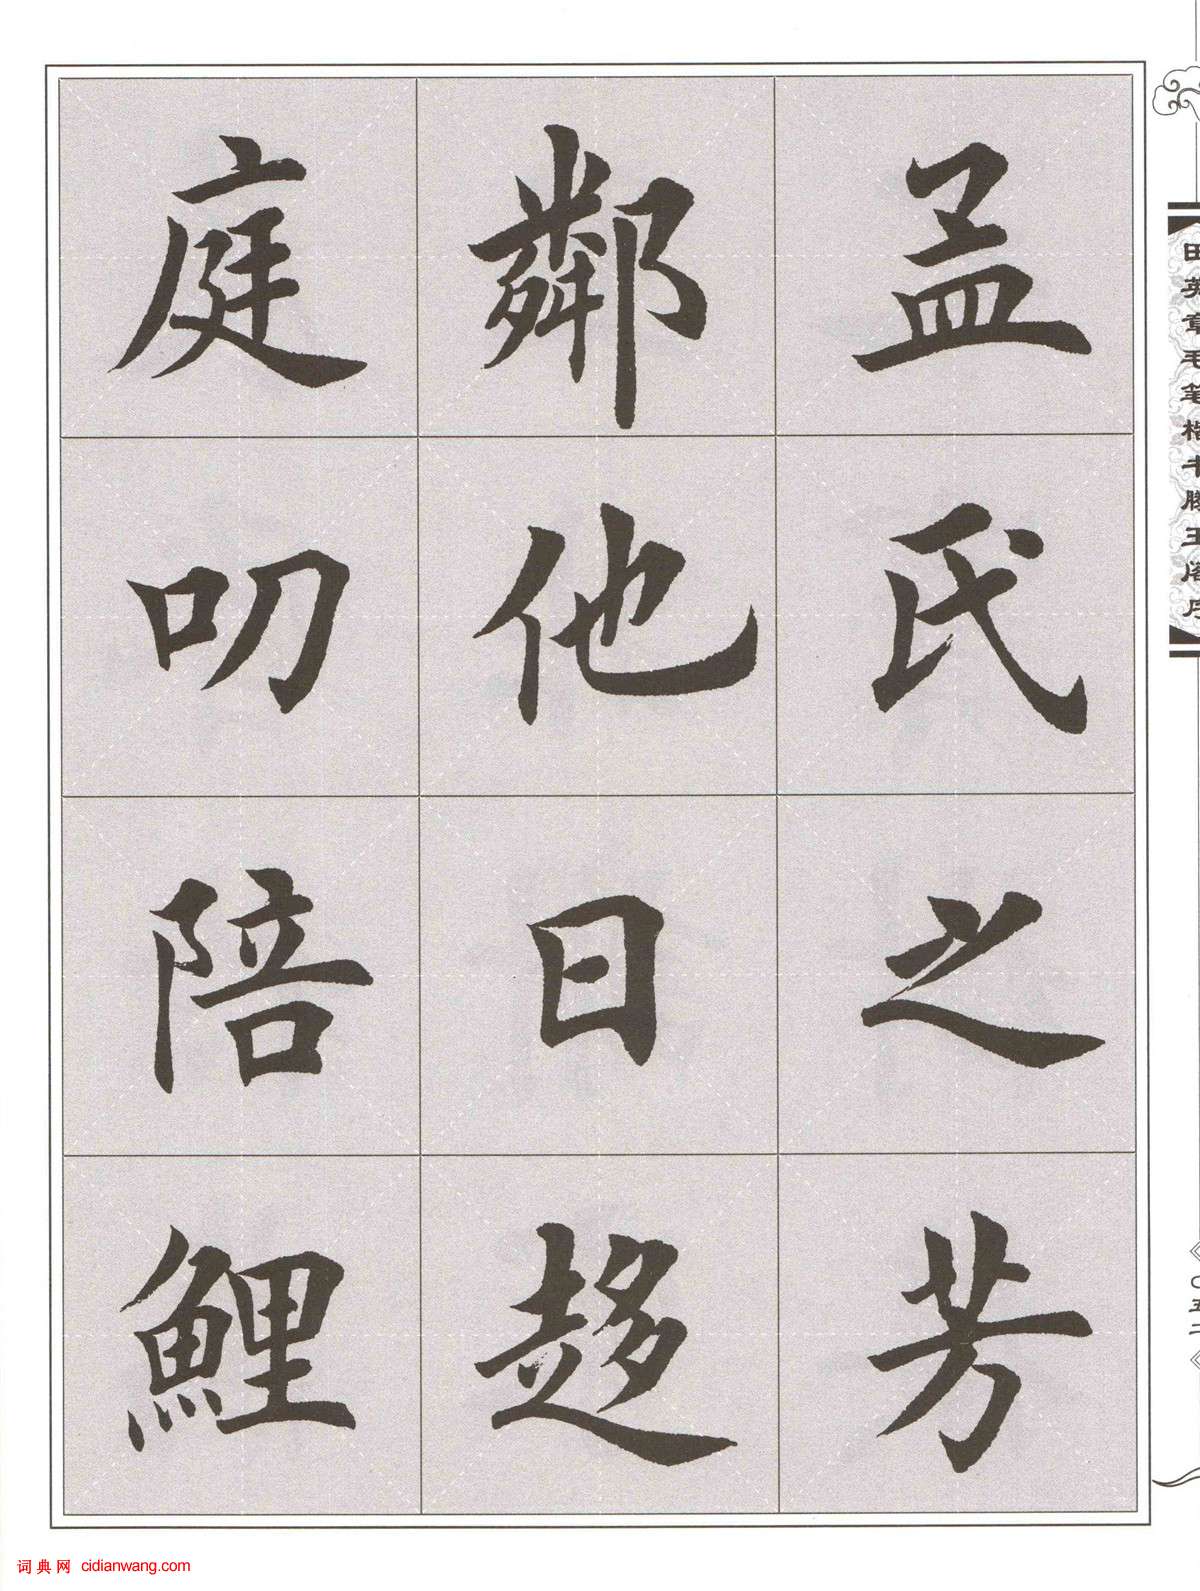 孟氏之芳
鄰他日趍
庭叨陪鯉
田英章毛笔楷书滕王阁序
〇五二
词典网 cidianwang.com